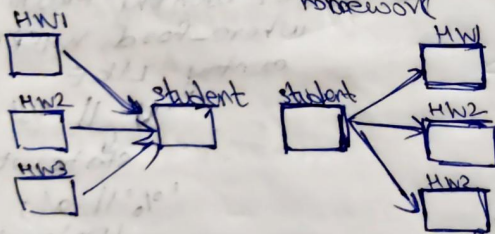 homework
HW1
HW1
student
student
HW2
HW2
HW3
HW3